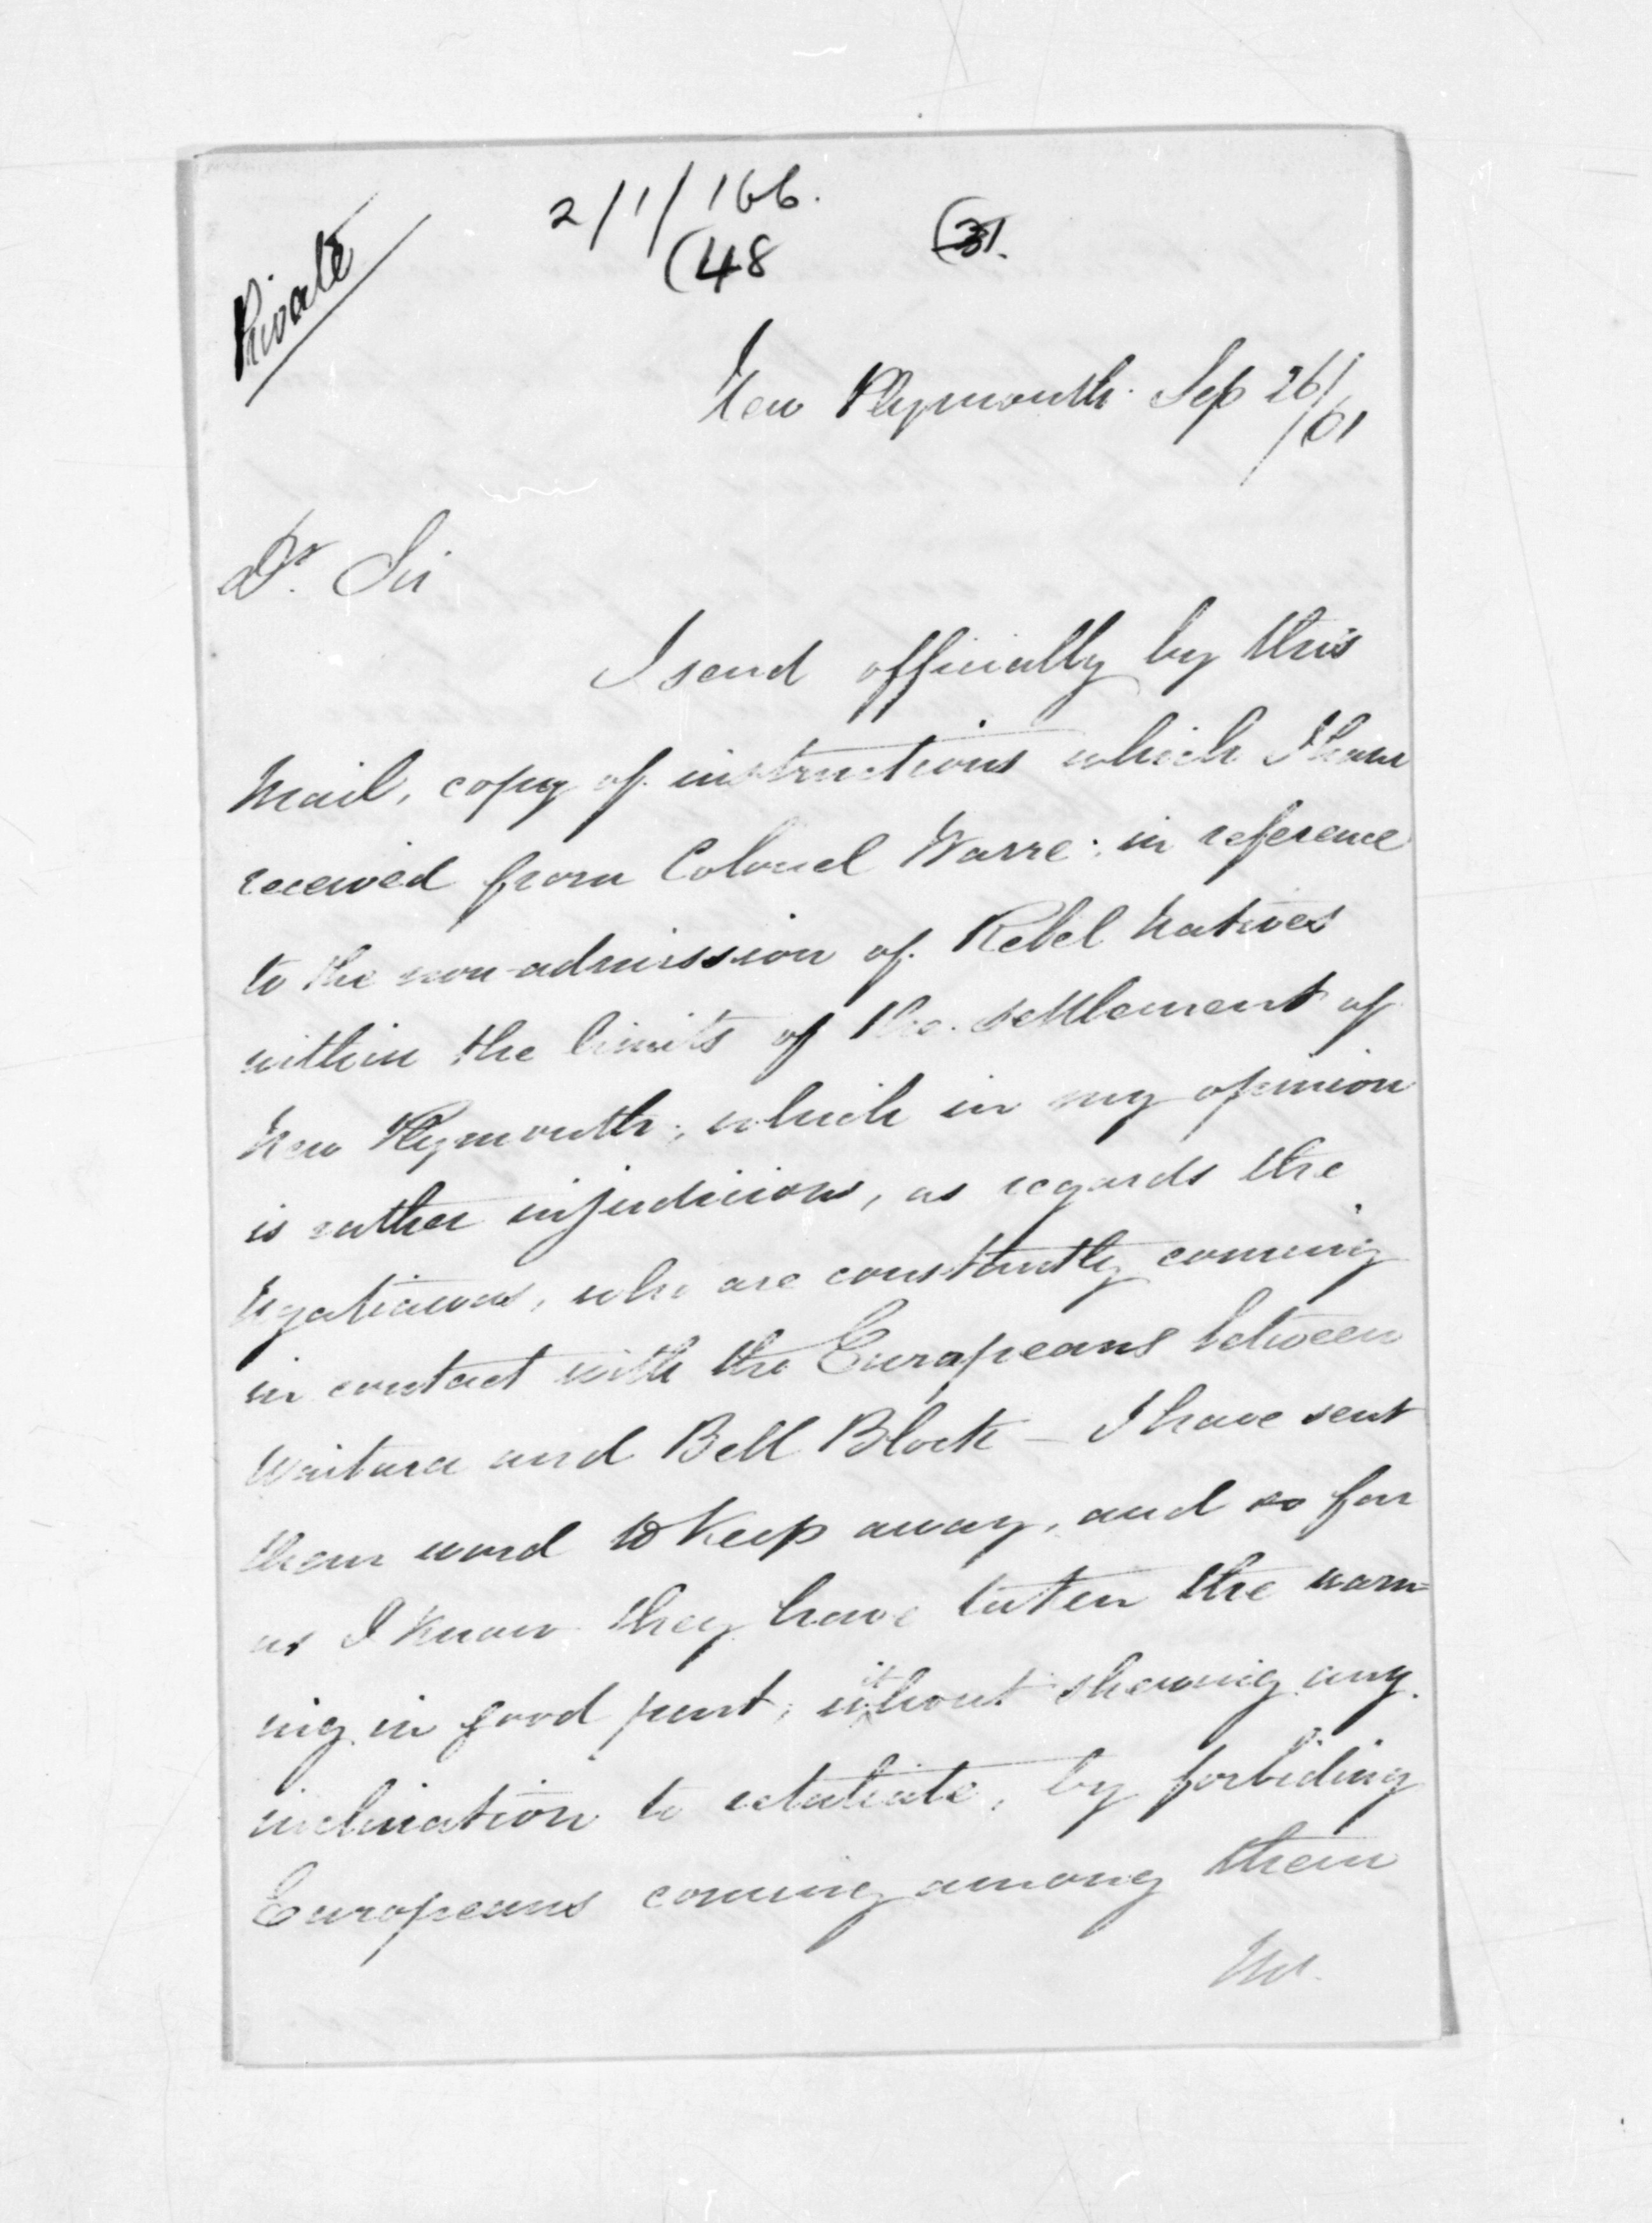 Private
2/1/166.
(48
(31.
New Plymouth. Sep 26/
/61
Dr. Sir
I send officially by this
Mail, copy of instructions which I have
received from Colonel Warre; in reference
to the non-admission of Rebel Natives
within the limits of the settlement of
New Plymouth; which in my opinion
is rather injudicious, as regards the
Ngatiawas, who are constantly coming
in contact with the Europeans between
Waitara and Bell Block - I have sent
them word to keep away, and so far
as I know they have taken the warn=
ing in good part; without shewing any
inclination to retaliate, by forbiding
Europeans coming among them